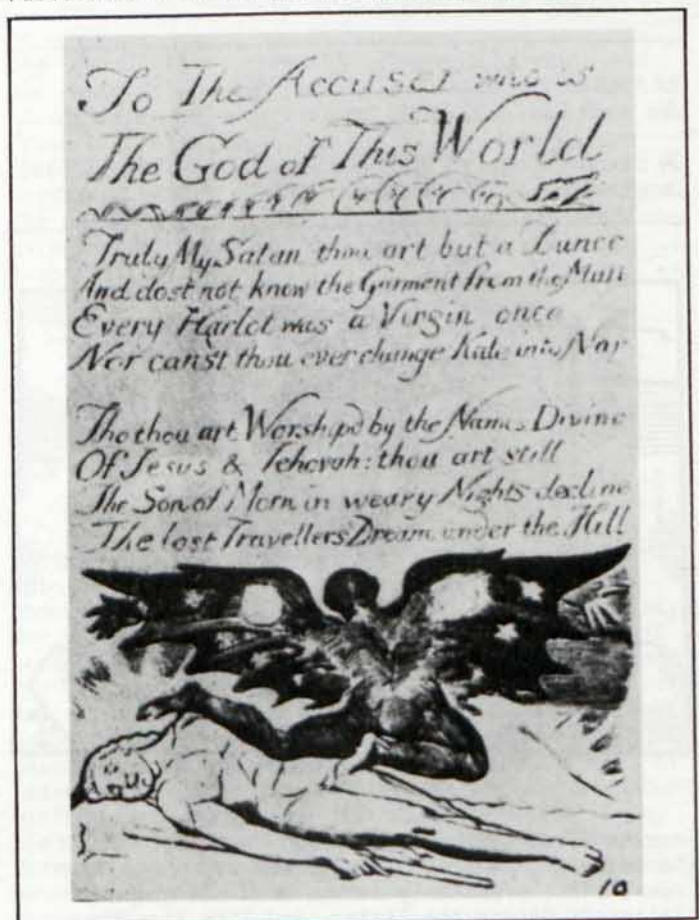 To The Accuser who is
The God of This World
Truly My Satan thou art but a Dunce
And dost not know the Garment from the Man
Every Harlot was a Virgin once
Nor canst thou ever change Kate into Nan
Tho thou art Worshipd by the Names Divine
Of Jesus & Jehovah: thou art still
The Son of Morn in weary Nights decline
The lost Travellers Dream under the Hill
10